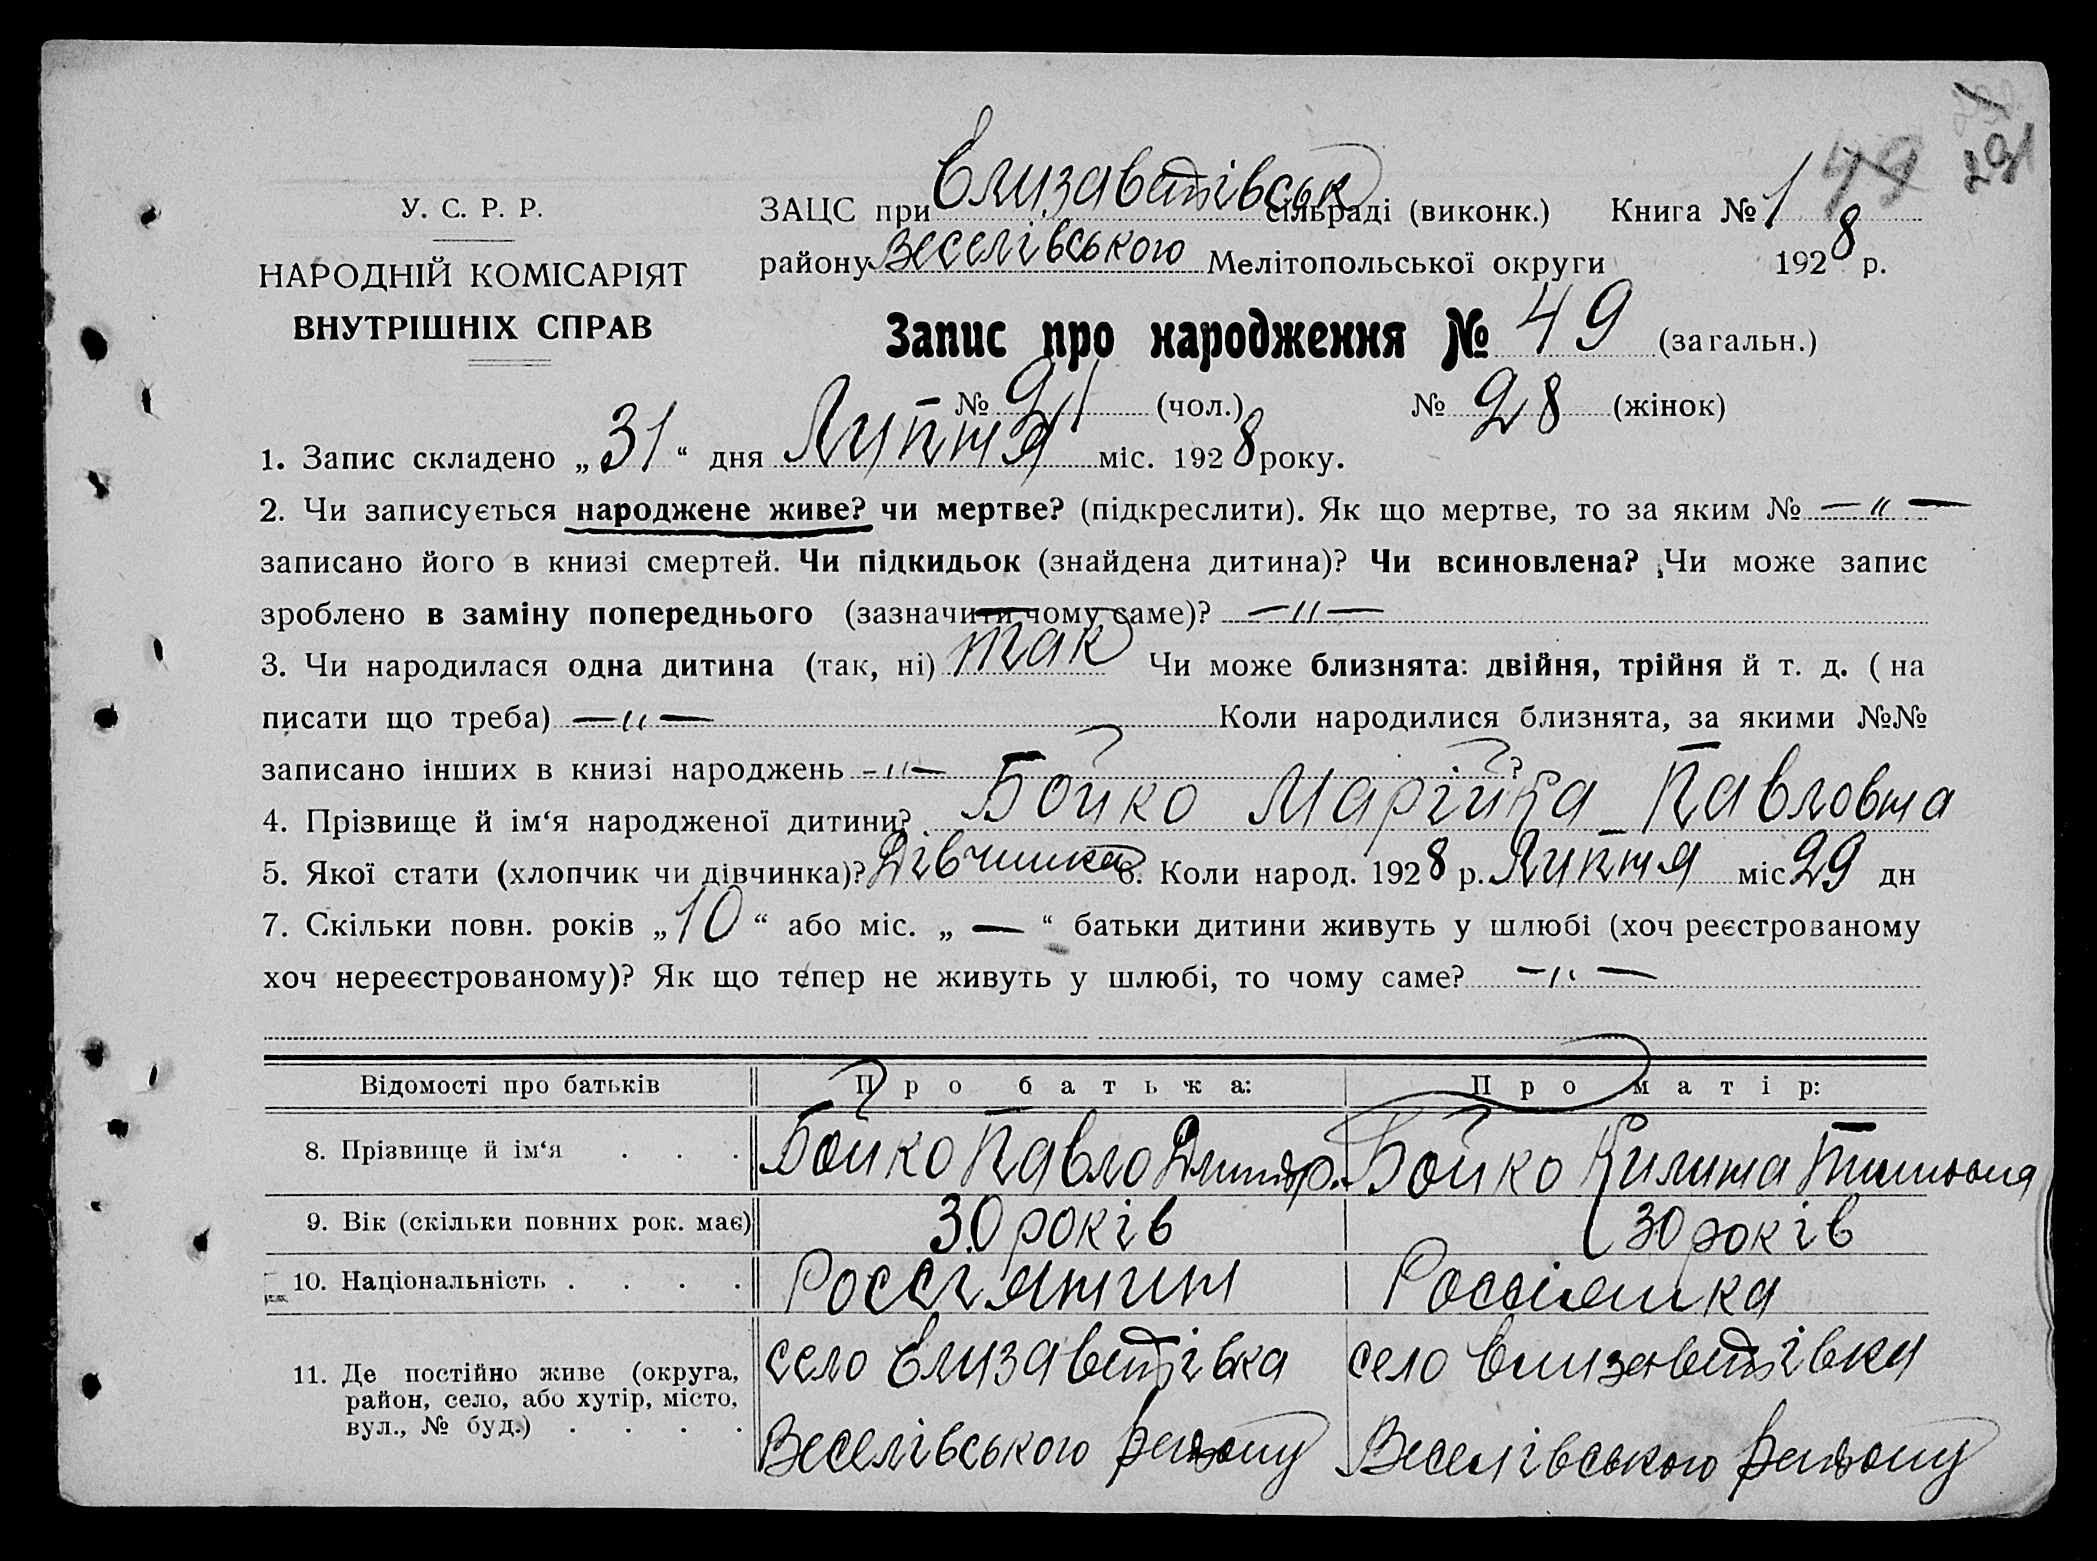 291
У. С. Р. Р.
НАРОДНІЙ КОМІСАРІЯТ
ВНУТРІШНІХ СПРАВ
ЗАЦС при Елизаветівськ сільраді (виконк.) Книга № 1 49
району Веселівського Мелітопольської округи 1928 р.
Запис про народження № 49 (загальн.)
№ 21 (чол.) № 28 (жінок)
1. Запис складено „31“ дня Липня міс. 1928 року.
2. Чи записується народжене живе? чи мертве? (підкреслити). Як що мертве, то за яким № —"—
записано його в книзі смертей. Чи підкидьок (знайдена дитина)? Чи всиновлена? Чи може запис
зроблено в заміну попереднього (зазначити чому саме)? —"—
3. Чи народилася одна дитина (так, ні) так Чи може близнята: двійня, трійня й т. д. ( на
писати що треба) —"— Коли народилися близнята, за якими №№
записано інших в книзі народжень —"— ?
4. Прізвище й ім‘я народженої дитини? Бойко Марійка Павловна
5. Якої стати (хлопчик чи дівчинка)? Дівчинка 6. Коли народ. 1928 р. Липня міс 29 дн
7. Скільки повн. років „10“ або міс. „—“ батьки дитини живуть у шлюбі (хоч реєстрованому
хоч нереєстрованому)? Як що тепер не живуть у шлюбі, то чому саме? —"—
Відомості про батьків Про батька: Про матір:
8. Прізвище й ім‘я . . . Бойко Павло Дмитр. Бойко Килина
9. Вік (скільки повних рок. має) 30 років 30 років
10. Національність . . . . Россіянин Россіянка
11. Де постійно живе (округа, село Елизаветівка село Елизаветівка
район, село, або хутір, місто,
вул., № буд.) . . . . Веселівського району Веселівського району